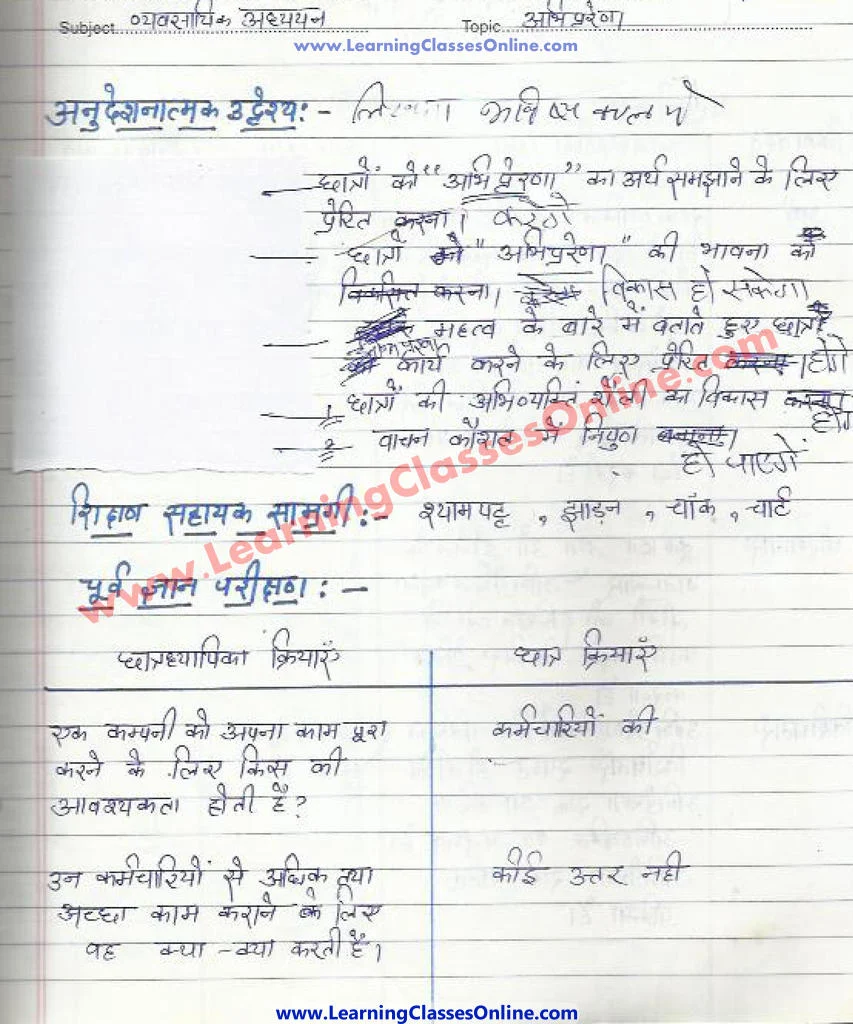 Subject व्यवसायिक अध्ययन Topic अभिप्ररेणा
www.LearningClassesOnline.com
अनुदेशनात्मक उद्देश्य:- लिखना भविष्य काल में
छात्रों को "अभिप्रेरणा" का अर्थ समझाने के लिए
प्रेरित करना। करेगे
छात्रों को "अभिप्ररेणा" की भावना को
विकसित करना। विकास हो सकेगा
महत्व के बारे में बताते हुए छात्रों
कार्य करने के लिए प्रेरित करना। होंगे
1 छात्रों की अभिव्यक्ति शैली का विकास करना। होगा
2 वाचन कौशल में निपुण बनाना।
हो पाएगें
शिक्षण सहायक सामग्री:- श्यामपट्ट, झाड़न, चॉक, चार्ट
पूर्व ज्ञान परीक्षण:-
www.LearningClassesOnline.com
छात्रध्यापिका क्रियाएँ छात्र क्रियाएँ
एक कम्पनी को अपना काम पूरा कर्मचारियों की
करने के लिए किस की
आवश्यकता होती है?
उन कर्मचारियों से अधिक तथा कोई उत्तर नही
अच्छा काम कराने के लिए
वह क्या-क्या करती हैं।
www.LearningClassesOnline.com